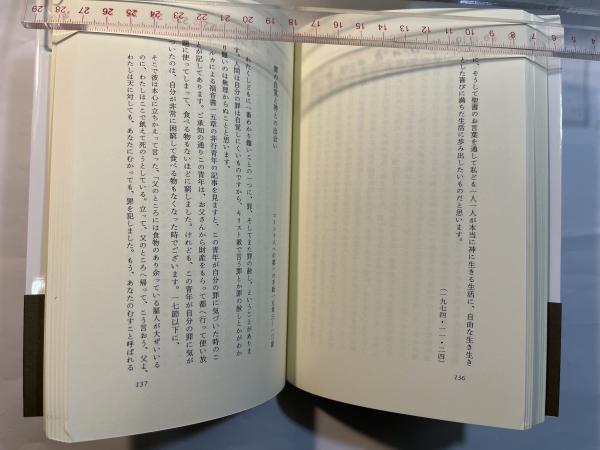 に、そうして聖書のお言葉を通して私ども一人一人が本当に神に生きる生活に、自由な生き生き
とした喜びに満ちた生活に歩み出したいものだと思います。
(一九七四・一一・二四)
136
罪の自覚と神との出会い
コリント人への第一の手紙一五章三―一〇節
わたくしどもに一番わかり難いことの一つに、罪、そしてまた罪の赦し、ということがありま
す。人間は自分の罪は自覚しにくいものですから、キリスト教で言う罪とか罪の赦しとかがわか
り難いのは無理からぬことと思います。
ルカによる福音書一五章の非行青年の記事を見ますと、この青年が自分の罪に気づいた時のこ
とが記してあります。ご承知の通りこの青年は、お父さんから財産をもらって都へ行って使い放
題に使ってしまって、食べる物もないほどに窮しました。けれども、この青年が自分の罪に気が
いたのは、自分が非常に困窮して食べる物もなくなった時でございます。一七節以下に、
そこで彼は本心に立ちかえって言った、「父のところには食物のあり余っている雇人が大ぜいいる
のに、わたしはここで飢えて死のうとしている。立って、父のところへ帰って、こう言おう、父よ、
わたしは天に対しても、あなたにむかっても、罪を犯しました。もう、あなたのむすこと呼ばれる
137
29 28 27 26 25 24 23 22 21 20 19 18 17 16 15 14 13 12 11 10 9 8 7 6 5 4 3 2 1